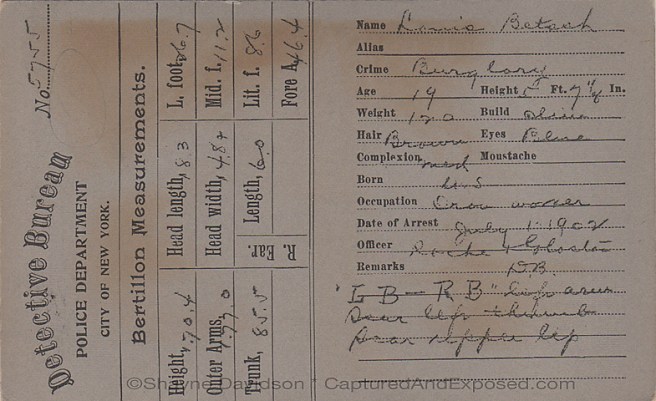 Detective Bureau
POLICE DEPARTMENT
CITY OF NEW YORK.
No. 5755
Bertillon Measurements.
Height, 70.4
Outer Arms, 77.0
Trunk, 85.5
Head length, 18.3
Head width,
R. Ear. Length, 6.0
L. foot, 26.7
Mid. f. 11.2
Lit. f. 8.6
Fore A. 46.4
Name Louis Betsch
Alias
Crime Burglary
Age 19 Height 5 Ft. 7 1/4 In.
Weight 120 Build Slim
Hair Brown Eyes Blue
Complexion med Moustache
Born U.S
Occupation Iron worker
Date of Arrest July 1 1902
Officer
Remarks D.B.
"L B - R B"
Scar thumb
Scar upper lip
©Shayne Davidson * CapturedAndExposed.com